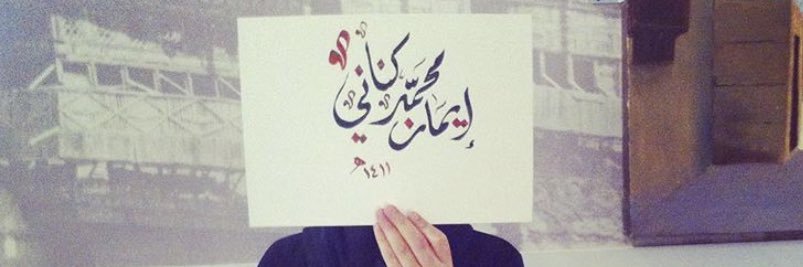 إيمان محمد كناني
١٤١١هـ